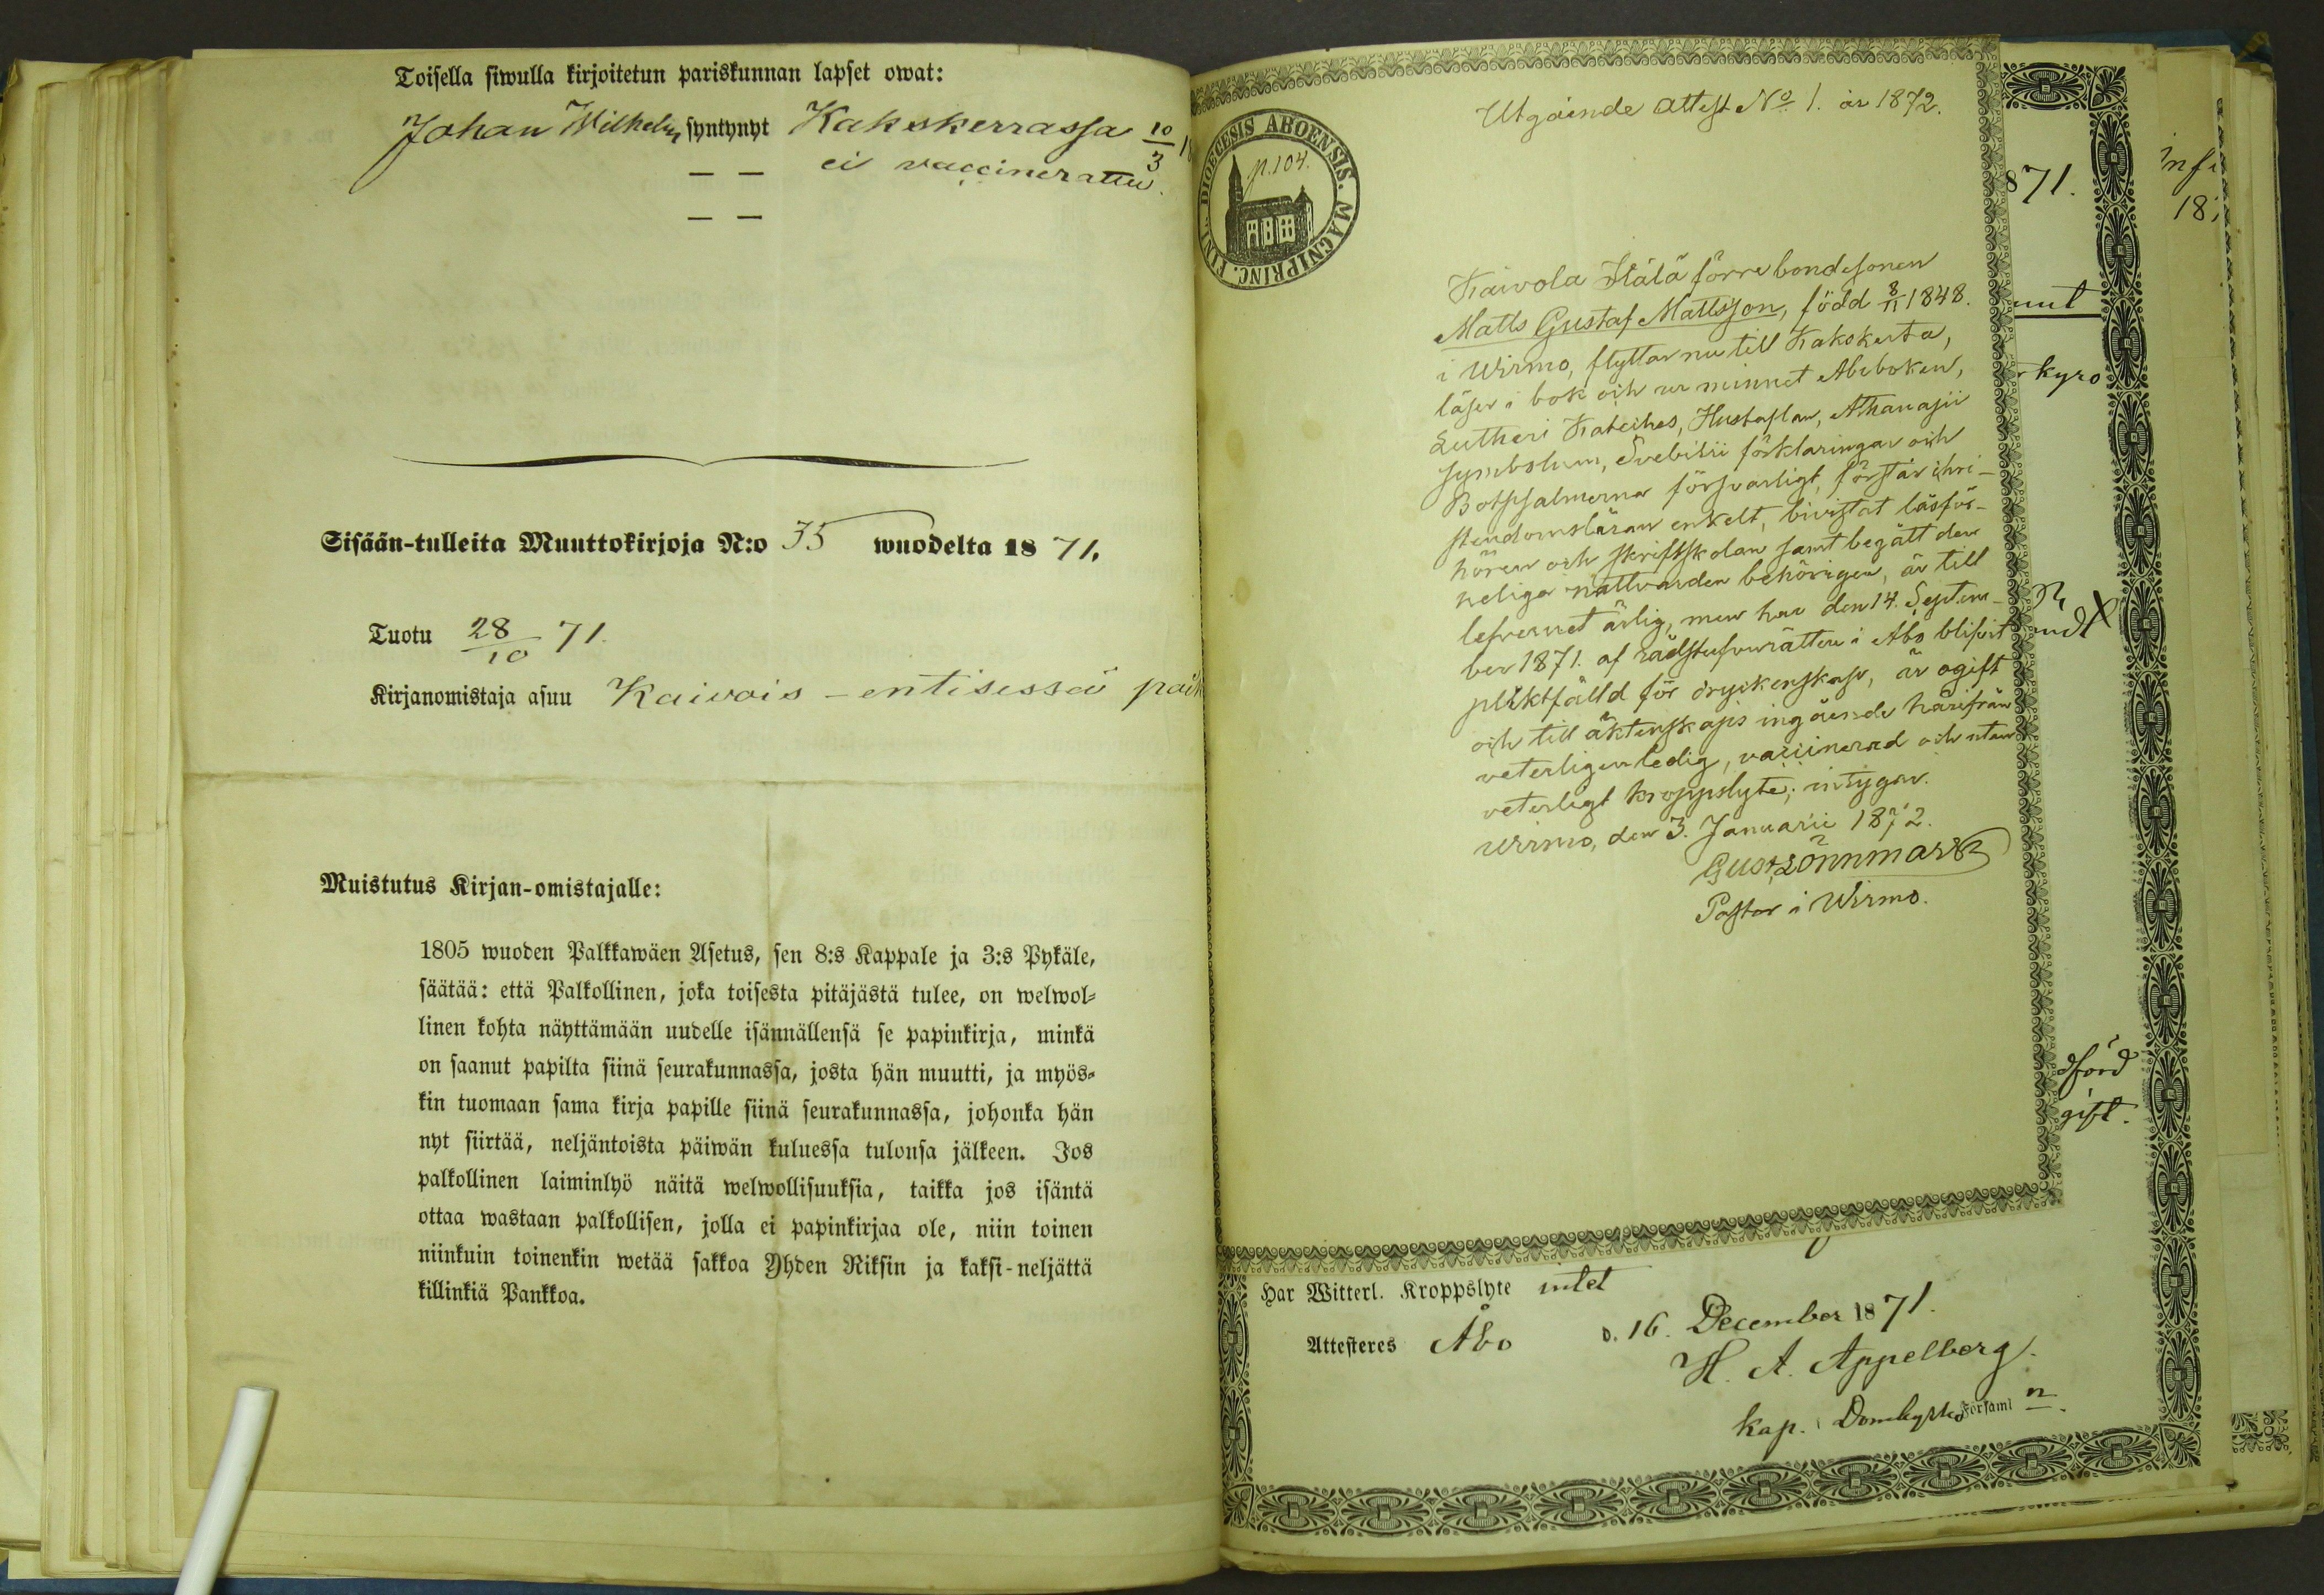 Toisella siwulla kirjoitetun pariskunnan lapset owat:
Johan Wilhelm syntynyt Kakskerrassa 10/3 18
— — ei vaccinerattu.
— —
Sisään-tulleita Muuttokirjoja N:o 35 wuodelta 1871.
Tuotu 28/10 71.
Kirjanomistaja asuu Kaivois - entisessä paik
Muistutus Kirjan-omistajalle:
1805 wuoden Palkkawäen Asetus, sen 8:s Kappale ja 3:s Pykäle,
säätää: että Palkollinen, joka toisesta pitäjästä tulee, on welwol-
linen kohta näyttämään uudelle isännällensä se papinkirja, minkä
on saanut papilta siinä seurakunnassa, josta hän muutti, ja myös-
kin tuomaan sama kirja papille siinä seurakunnassa, johonka hän
nyt siirtää, neljäntoista päiwän kuluessa tulonsa jälkeen. Jos
palkollinen laiminlyö näitä welwollisuuksia, taikka jos isäntä
ottaa wastaan palkollisen, jolla ei papinkirjaa ole, niin toinen
niinkuin toinenkin wetää sakkoa Yhden Riksin ja kaksi-neljättä
killinkiä Pankkoa.
Utgående attest No 1. år 1872.
DIOECESIS ABOENSIS. MAGNIPRINC. FINL.
p. 104.
Kaivola Ylälä förre bondesonen
Matts Gustaf Mattsson, född 8/11 1848.
i Wirmo, flyttar nu till Kakskerta,
läser i bok och ur minnet Abcboken,
Lutheri Kateches, Hustaflan, Athanasii
symbolum, Svebilii förklaringar och
Botpsalmerna försvarligt, förstår chri-
stendomsläran enkelt, bivistat läsför-
hören och skriftskolan samt begått den
heliga nattvarden behörigen, är till
lefvernet ärlig, men har den 14. Septem-
ber 1871. af rådstufvurätten i Åbo blifvit
pliktfälld för dryckenskap, är ogift
och till äktenskaps ingående härifrån
veterligen ledig, vaccinerad och utan
veterligt kroppslyte; intygar.
Wirmo, den 3. Januarii 1872.
Gust. Lönnmark
Pastor i Wirmo.
871.
kyro
gift.
Har Witterl. Kroppslyte intet
Attesteres Åbo d. 16. December 1871.
H. A. Appelberg.
Kap. i Domkyrko Församl n.